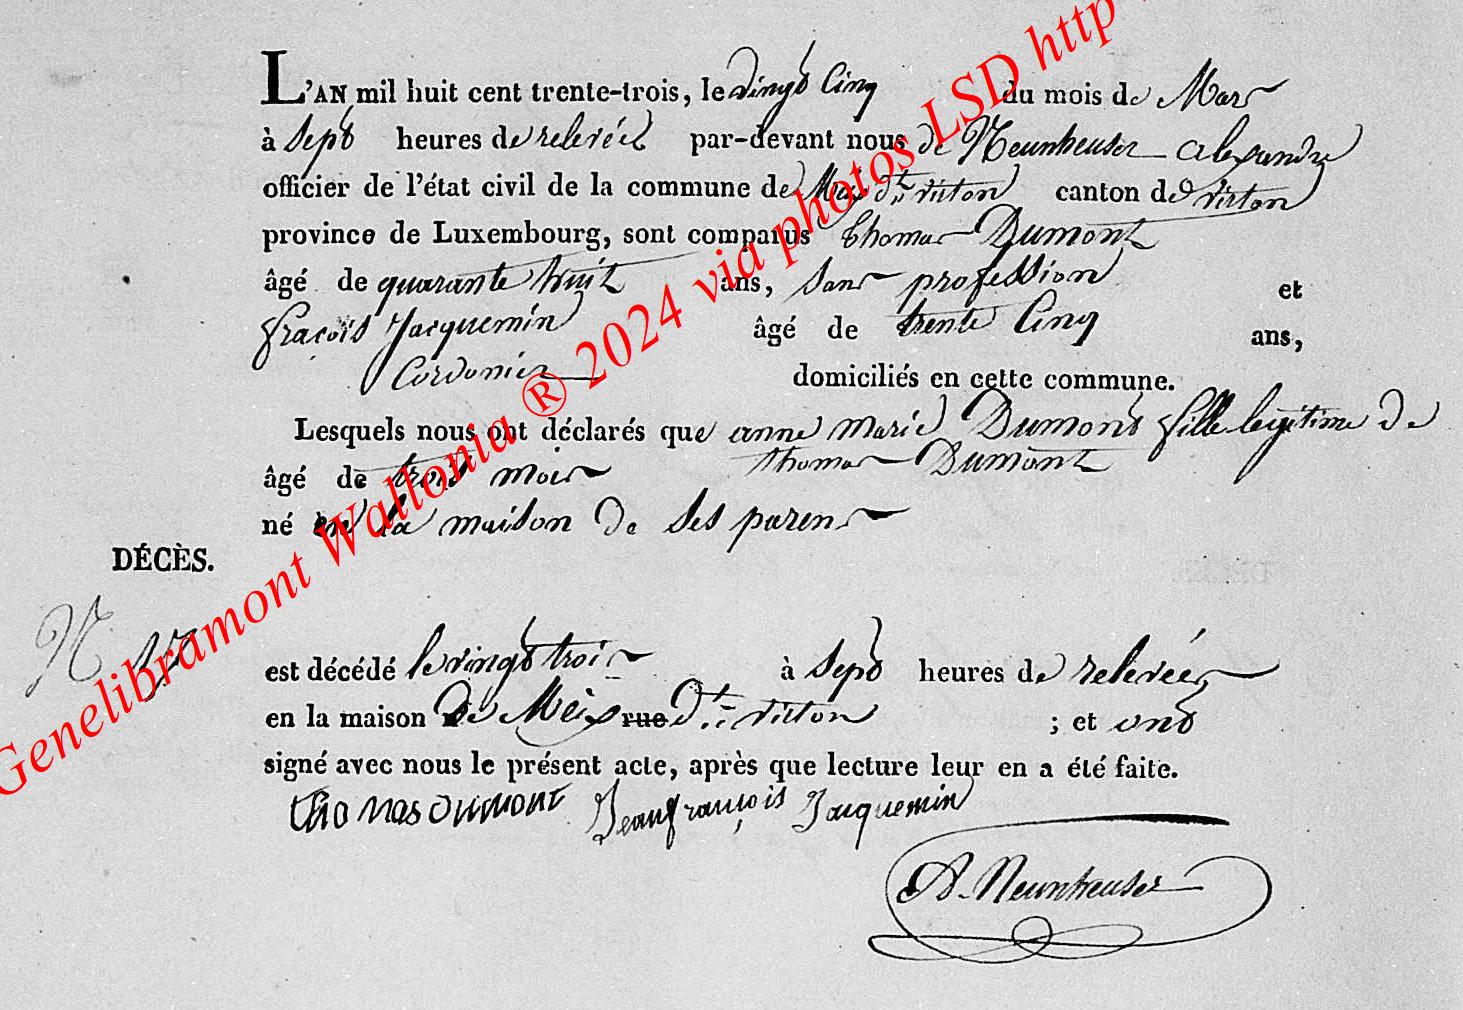 L'AN mil huit cent trente-trois, le vingt Cinq du mois de Mars
à sept heures de relevée par-devant nous de Neunheuser alexandre
officier de l'état civil de la commune de Meix dt virton canton de virton
province de Luxembourg, sont comparus Thomas Dumont
âgé de quarante huit ans, sans profession et
fraçois Jacquemin âgé de trente Cinq ans,
Cordonier domiciliés en cette commune.
Lesquels nous ont déclarés que anne marie Dumont fille legitime de
âgé de trois mois thomas Dumont
né en la maison de ses parens
DÉCÈS.
N
est décédé le vingt trois à sept heures de relevée
en la maison de Meix rue dt virton ; et ont
signé avec nous le présent acte, après que lecture leur en a été faite.
thomas dumont Jean françois Jacquemin
A. Neunheuser
Genelibramont Wallonia ® 2024 via photos LSD http